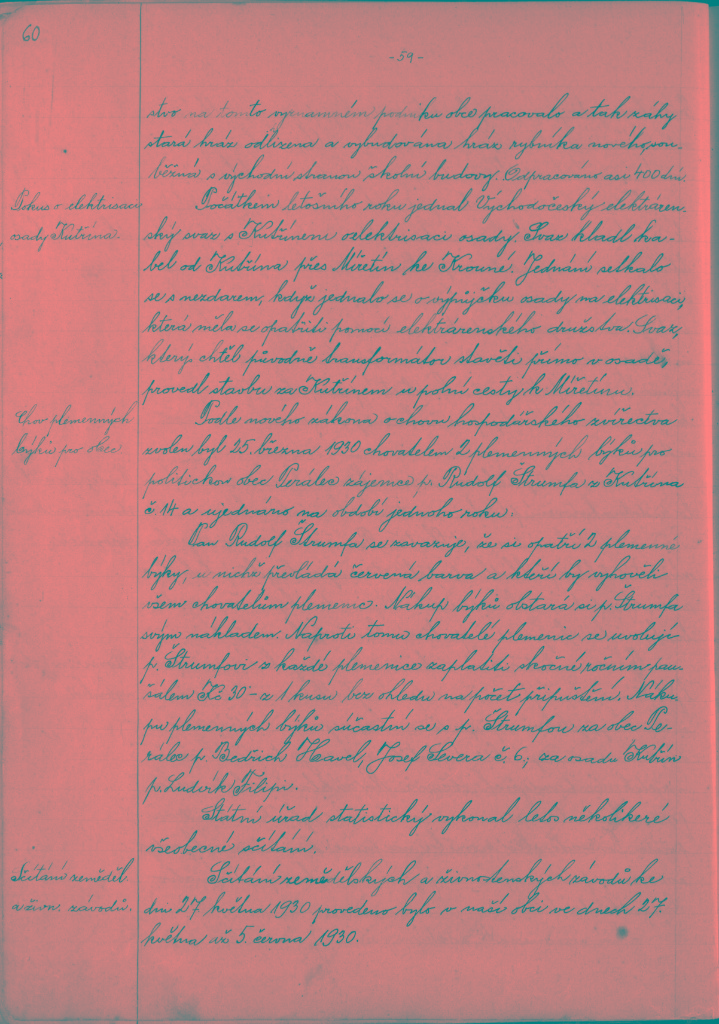 60
- 59 -
stvo na tomto významném podniku obce pracovalo a tak záhy
stará hráz odlizena a vybudována hráz rybníka nového, sou-
běžná s východní stranou školní budovy. Odpracováno asi 400 dní.
Pokus o elektrisaci
osady Kutřína.
Počátkem letošního roku jednal Východočeský elektráren-
ský svaz s Kutřínem o elektrisaci osady. Svaz kladl ka-
bel od Kutřína přes Miřetín ke Krouné. Jednání setkalo
se s nezdarem, když jednalo se o výpůjčku osady na elektrisaci,
která měla se opatřiti pomocí elektrárenského družstva. Svaz,
který chtěl původně transformátor stavěti přímo v osadě,
provedl stavbu za Kutřínem u polní cesty k Miřetínu.
Chov plemenných
býků pro obec
Podle nového zákona o chovu hospodářského zvířectva
zvolen byl 25. března 1930 chovatelem 2 plemenných býků pro
politickou obec Perálec zájemce p. Rudolf Štrumfa z Kutřína
č. 14 a ujednáno na období jednoho roku.
Pan Rudolf Štrumfa se zavazuje, že si opatří 2 plemenné
býky, u nichž převládá červená barva a kteří by vyhověli
všem chovatelům plemenic. Nákup býků obstará si p. Štrumfa
svým nákladem. Naproti tomu chovatelé plemenic se uvolují
p. Štrumfovi z každé plemenice zaplatiti skočné ročním pau-
šálem Kč 30·- z 1 kusu bez ohledu na počet připuštění. Náku-
pu plemenných býků súčastní se s p. Štrumfou za obec Pe-
rálec p. Bedřich Havel, Josef Severa č. 6; za osadu Kutřín
p. Ludvík Filipi.
Státní úřad statistický vykonal letos několikeré
všeobecné sčítání.
Sčítání zeměděl.
a živn. závodů.
Sčítání zemědělských a živnostenských závodů ke
dni 27. května 1930 provedeno bylo v naší obci ve dnech 27.
května až 5. června 1930.